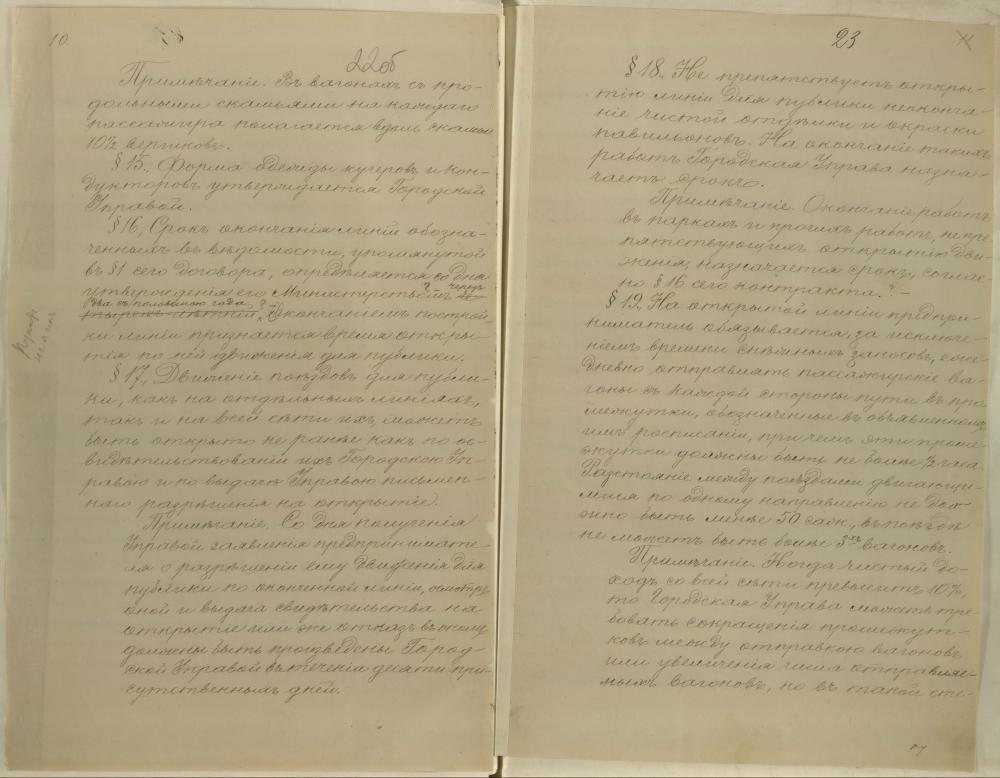 10.
22об
Примѣчаніе. Въ вагонахъ съ про-
дольными скамьями на каждаго
пассажира полагается вдоль скамьи
10½ вершковъ.
§ 15, Форма одежды кучеровъ и кон-
дукторовъ утверждается Городской
Управой.
§ 16, Срокъ окончанія линій обозна-
ченныхъ въ вѣдомости, упомянутой
въ § 1 сего договора, опредѣляется со дня
утвержденія его Министерствомъ ? – черезъ
два съ половиною года, ?
тырехъ лѣтній. Окончаніемъ построй-
ки линіи признается время откры-
тія по ней движенія для публики.
§ 17, Движеніе поѣздовъ для публи-
ки, какъ на отдѣльныхъ линіяхъ,
такъ и на всей сѣти ихъ, можетъ
быть открыто не ранѣе какъ по ос-
видѣтельствованіи ихъ Городскою Уп-
равою и по выдачѣ Управою письмен-
наго разрѣшенія на открытіе.
Примѣчаніе. Со дня полученія
Управой заявленія предпринимате-
ля о разрѣшеніи ему движенія для
публики по оконченной линіи, осмотръ
оной и выдача свидѣтельства на
открытіе или же отказъ въ оному
должны быть произведены Город-
ской Управой въ теченіи десяти при-
сутственныхъ дней.
23
§ 18, Не препятствуетъ откры-
тію линіи для публики неоконча-
ніе чистой отдѣлки и окраски
павильоновъ. На окончаніе такихъ
работъ Городская Управа назна-
чаетъ срокъ.
Примѣчаніе. Окончаніе работъ
въ паркахъ и прочихъ работъ, не пре-
пятствующихъ открытію дви-
женія, назначается срокъ, соглас-
но § 16 сего контракта. ? –
§ 19, На открытой линіи предпри-
ниматель обязывается, за исключе-
ніемъ времени снѣжныхъ заносовъ, еже-
дневно отправлять пассажирскіе ва-
гоны съ каждой стороны пути въ про-
межутки, обозначенные въ объявленномъ
имъ росписаніи, при чемъ эти проме-
жутки должны быть не болѣе ½ часа.
Разстояніе между поѣздами двигающи-
мися по одному направленію не дол-
жно быть менѣе 50 саж., въ поѣздѣ
не можетъ быть болѣе 3хъ вагоновъ.
Примѣчаніе. Когда чистый до-
ходъ со всей сѣти превыситъ 10%,
то Городская Управа можетъ тре-
бовать сокращенія промежут-
ковъ между отправкою вагоновъ
или увеличенія числа отправляе-
мыхъ вагоновъ, но въ такой сте-